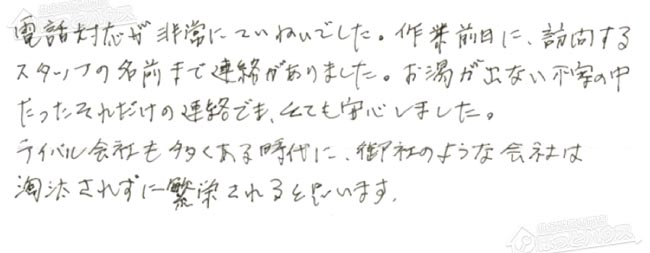 電話対応が非常にていねいでした。作業前日に、訪問する
スタッフの名前まで連絡がありました。お湯が出ない不安の中
たったそれだけの連絡でも、とても安心しました。
ライバル会社も多くある時代に、御社のような会社は
淘汰されずに繁栄されると思います。